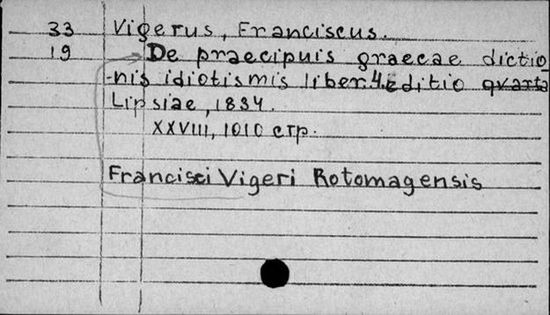 33 Vigerus, Franciscus.
19 De praecipuis graecae dictio
-nis idiotismis liber. 4. editio quarta
Lipsiae, 1834.
XXVIII, 1010 стр.
Francisci Vigeri Rotomagensis